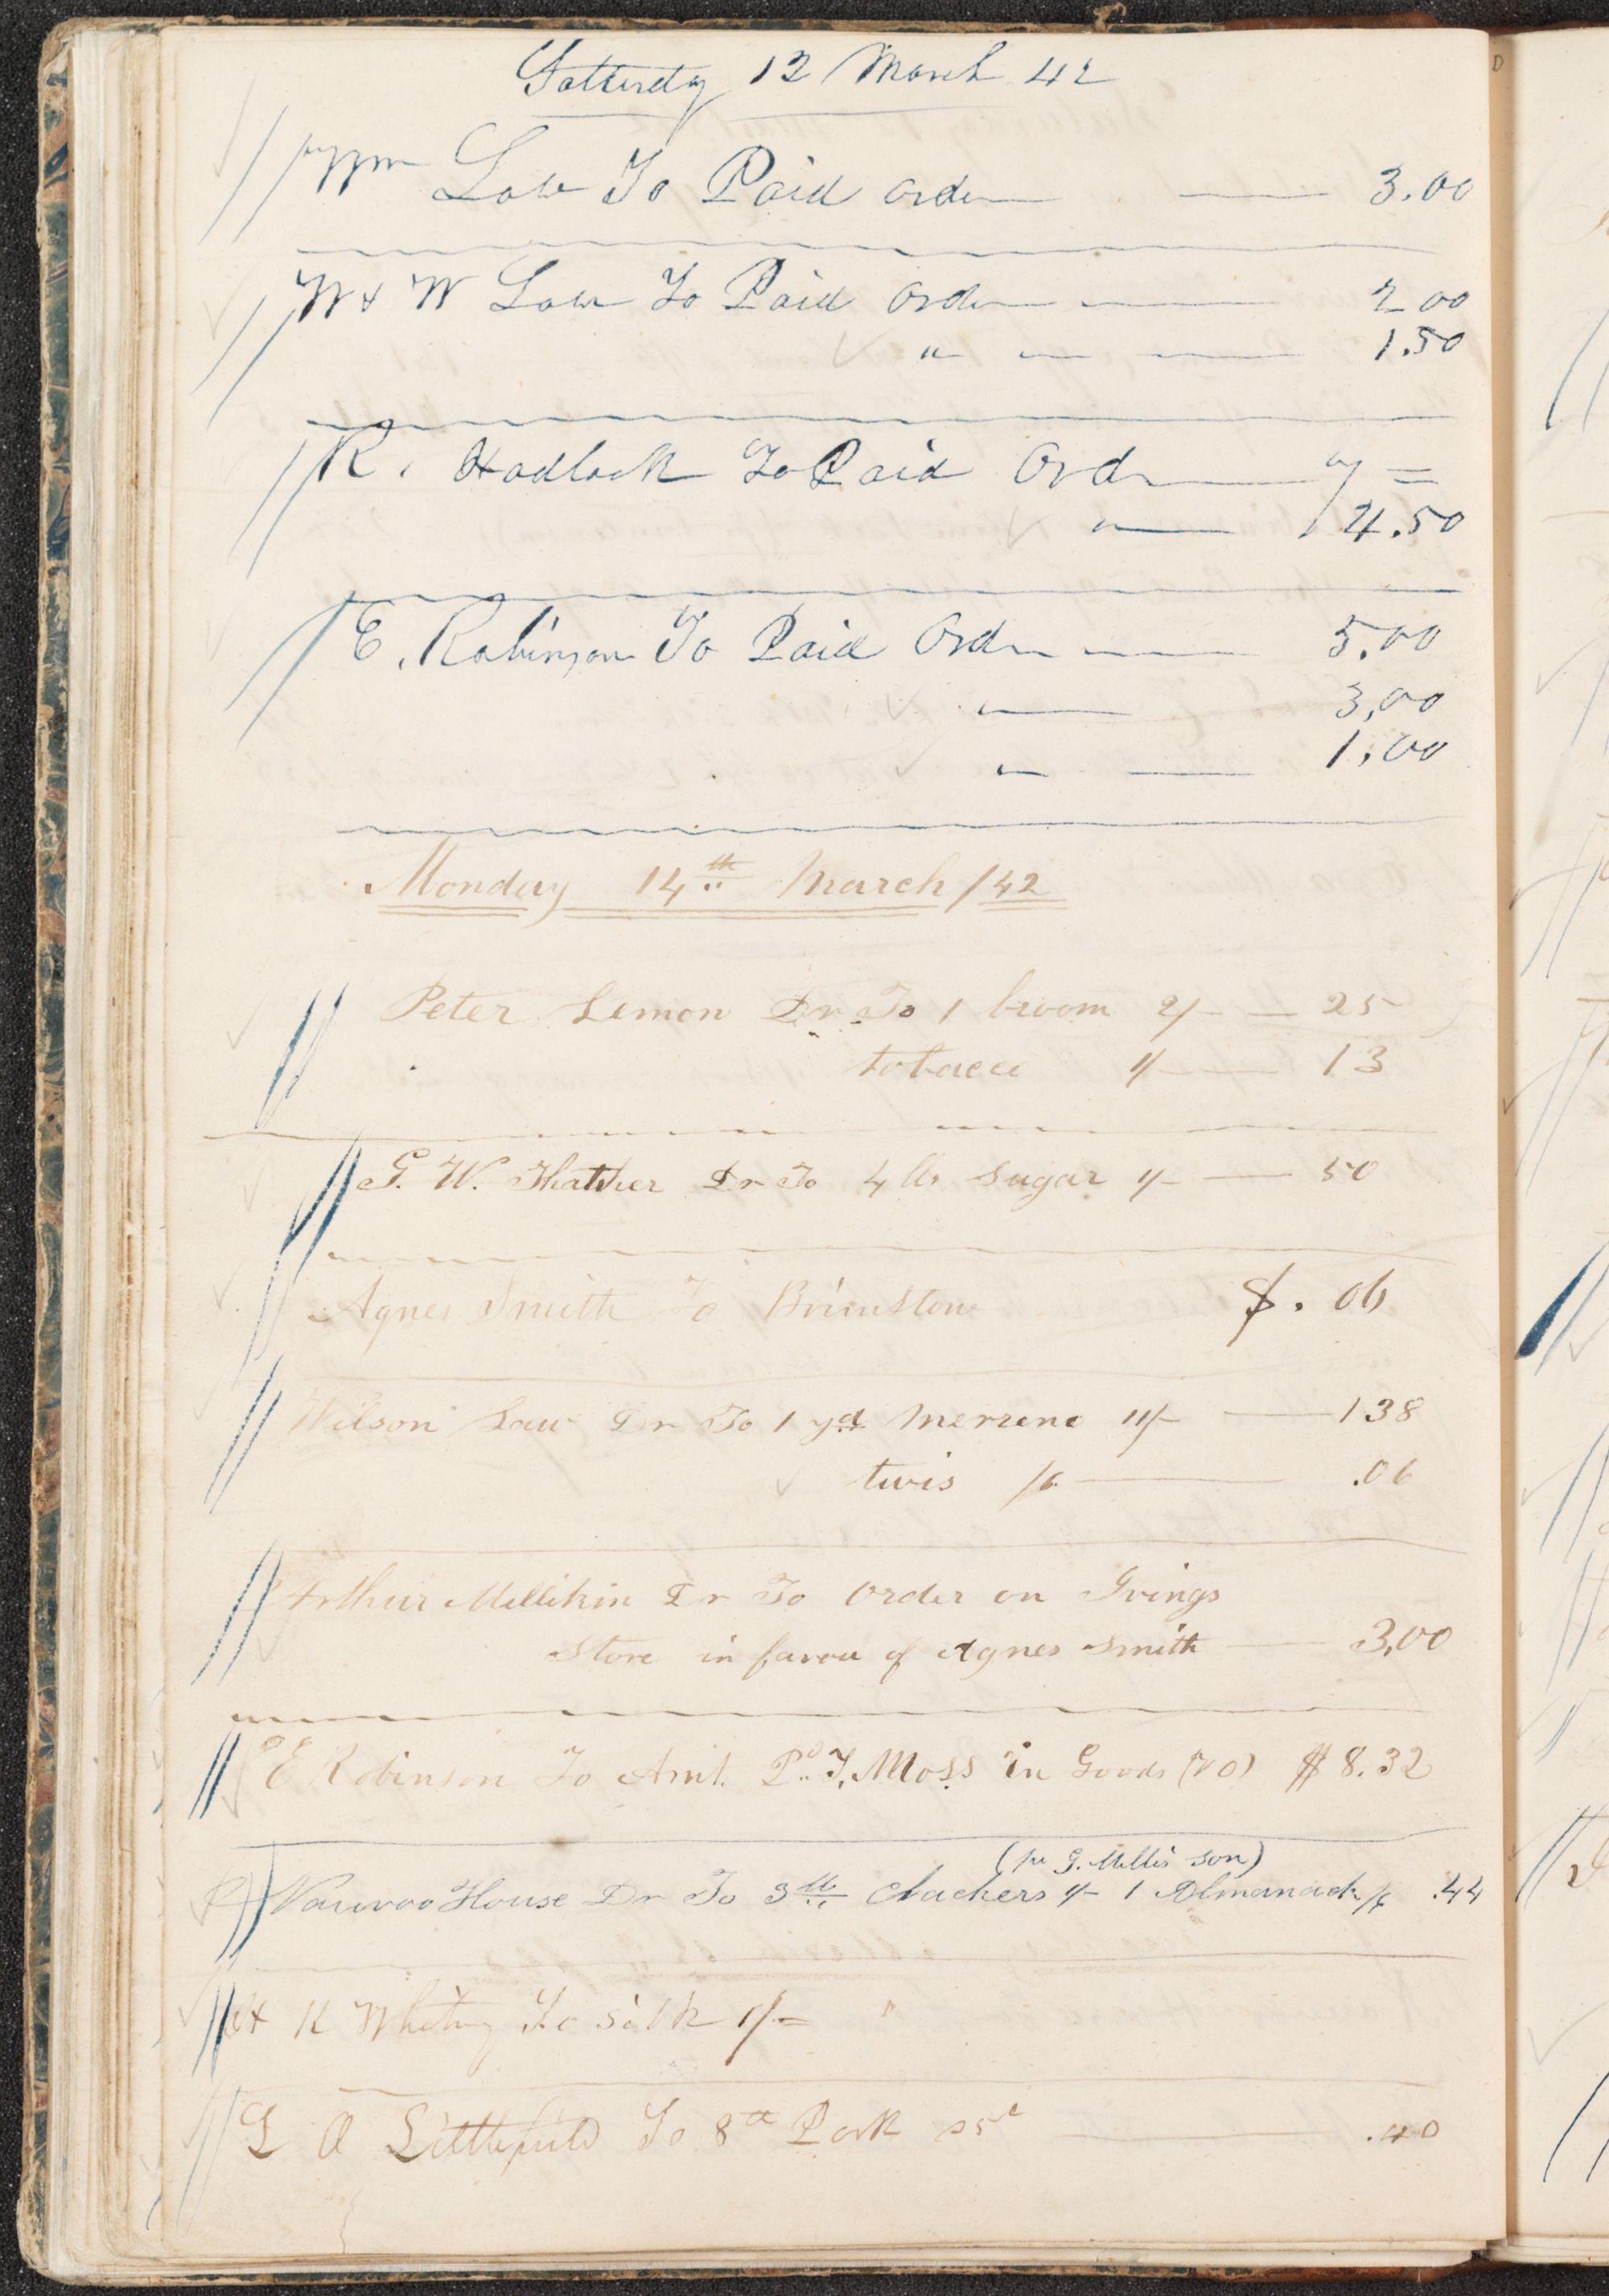 Satturday 12 March 42
Wm Law To Paid order 3.00
W & W Law To Paid Order 2 00
" 1.50
R. Hadlock To Paid Ordr
" 4.50
E. Robinson To Paid Ordr 5.00
" 3,00
" 1.00
Monday 14th March /42
Peter Lemon Dr To 1 broom 2/- 25
tobacco 1/- 13
G. W. Thatcher Dr To 4 lbs Sugar 1/- 50
Agnes Smith To Brimston $ . 06
Wilson Law Dr To 1 yd Merreno 11/- 138
twis /6 .06
Arthur Millikin Dr To Order on Ivings
Store in favou of Agnes Smith 3,00
E Robinson To Amt. Pd. T. Moss in Goods $ 8.32
(pr G. Millis son)
Nauvoo House Dr To 3 lb Clackers 1/- 1 Almanack /6 .44
K Whitney To Silk 1/-
L O Littlefield To 8 lb Pork 05c .40